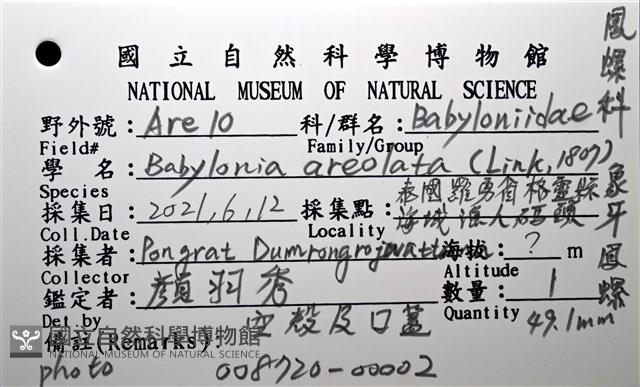 國立自然科學博物館
NATIONAL MUSEUM OF NATURAL SCIENCE
野外號：Are 10 科/群名：Babyloniidae
Field# Family/Group
學 名：Babylonia areolata (Link, 1807)
Species
採集日：2021, 6, 12 採集點：泰國羅勇省格靈縣
海域漁人碼頭
Coll.Date Locality
採集者：Pongrat Dumrongrojwatt 海拔：? m
Collector Altitude
鑑定者：顏羽秀 數量：1
Det.by Quantity 49.1mm
空殼及口蓋
備註(Remarks)：
photo 008720-00002
鳳螺科 象牙鳳螺
國立自然科學博物館
NATIONAL MUSEUM OF NATURAL SCIENCE